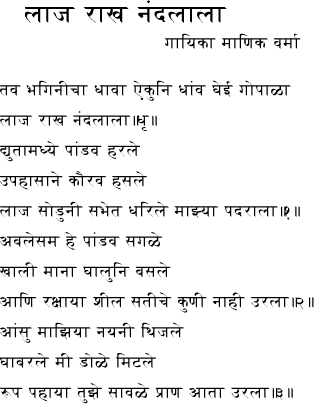 लाज राख नंदलाला
गायिका माणिक वर्मा
तव भगिनीचा धावा ऐकुनि धांव घेई गोपाळा
लाज राख नंदलाला॥धृ॥
द्युतामध्ये पांडव हरले
उपहासाने कौरव हसले
लाज सोडुनी सभेत धरिले माझ्या पदराला॥१॥
अबलेसम हे पांडव सगळे
खाली माना घालुनि बसले
आणि रक्षाया शील सतीचे कुणी नाही उरला॥२॥
आंसु माझिया नयनी थिजले
घाबरले मी डोळे मिटले
रूप पहाया तुझे सावळे प्राण आता उरला॥३॥